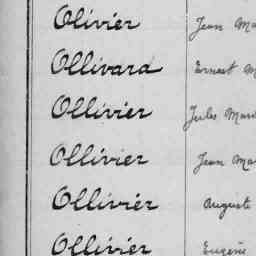 Olivier Jean Ma
Ollivard Ernest M
Ollivier Jules Mari
Ollivier Jean Mar
Ollivier Auguste
Ollivier Eugène